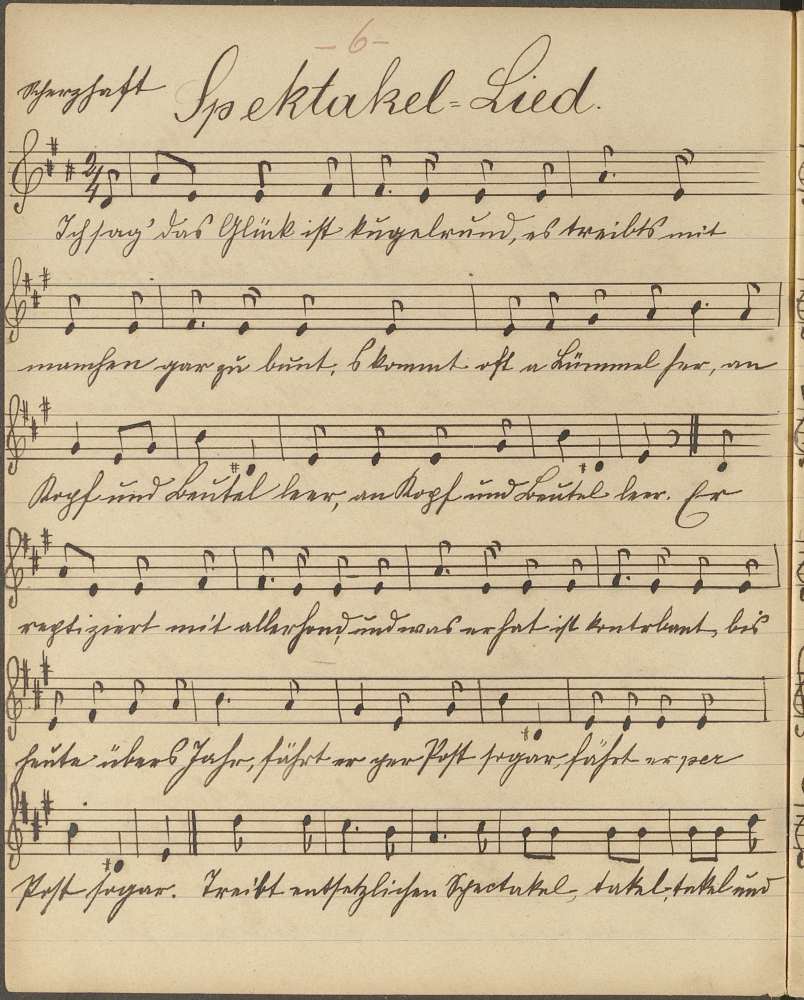 - 6 -
Scherzhaft Spektakel=Lied.
2/4
Ich sag' das Glück ist kugelrund, es treibts mit
manchen gar zu bunt; s kommt oft a Lümmel her, an
Kopf und Beutel leer, an Kopf und Beutel leer. Er
mit allerhand, und was er hat ist kontrbant, bis
heute übers Jahr, fährt er per Post sogar, fährt er per
Post sogar. Treibt entsetzlichen Spectakel, takel, takel und